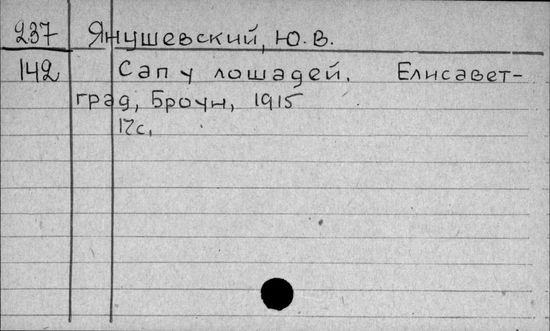 237 Янушевский, Ю.В.
142 Сап у лошадей. Елисавет-
град, Броун, 1915
17с.